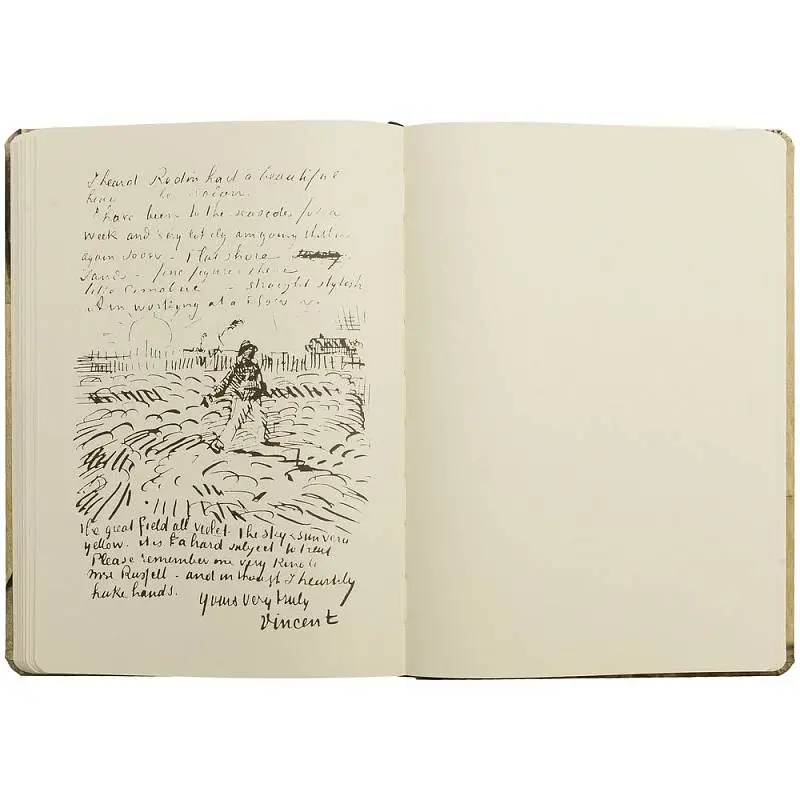 I heard Rodin had a beautiful
head at the Salon.
I have been to the seaside for a
week and very likely am going thither
again soon. – Flat shore
sands – fine figures there
like Cimabue – straight stylish
Am working at a Sower
The great field all violet the sky & sun very
yellow. it is a hard subject to treat
Please remember me very kindly
Mrs Russell – and in thought I heartily
hake hands.
Yours very truly
Vincent